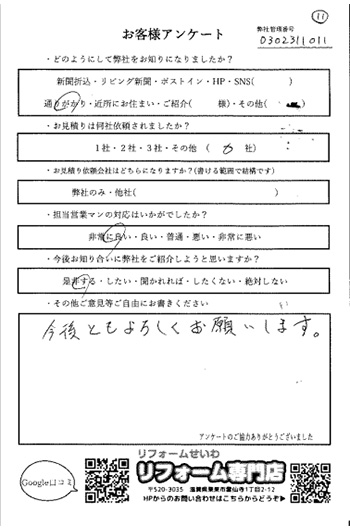 11
お客様アンケート
弊社管理番号
0302311011
・どのようにして弊社をお知りになりましたか?
新聞折込・リビング新聞・ポストイン・HP・SNS( )
通りがかり・近所にお住まい・ご紹介( 様)・その他( )
・お見積りは何社依頼されましたか?
1社・2社・3社・その他 ( 社)
・お見積り依頼会社はどちらになりますか?(書ける範囲で結構です)
弊社のみ・他社( )
・担当営業マンの対応はいかがでしたか?
非常に良い・良い・普通・悪い・非常に悪い
・今後お知り合いに弊社をご紹介しようと思いますか?
是非する・したい・聞かれれば・したくない・絶対しない
・その他ご意見等ご自由にお書きください
今後ともよろしくお願いします。
アンケートのご協力ありがとうございました
リフォームせいわ
リフォーム専門店
〒520-3035 滋賀県栗東市霊仙寺1丁目2-12
HPからのお問い合わせはこちらからどうぞ▶
Google口コミ